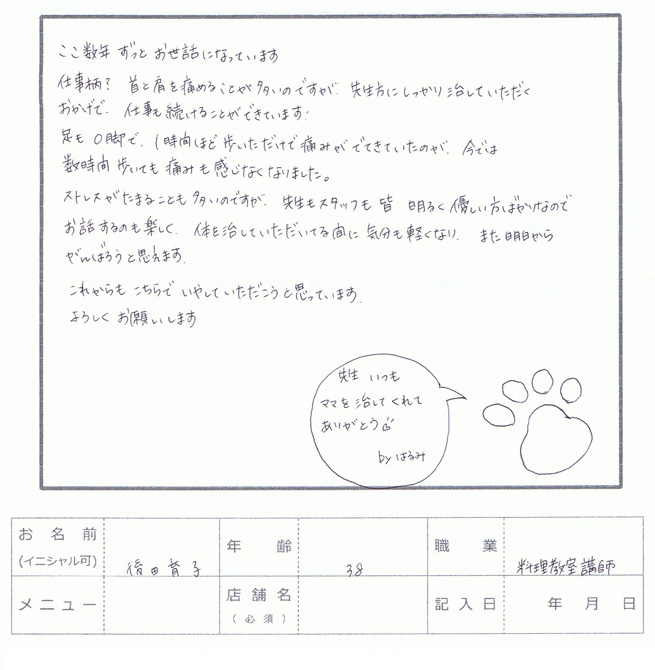 ここ数年 ずっと お世話になっています
仕事柄? 首と肩を痛めることが多いのですが 先生方にしっかり治していただく
おかげで、仕事も続けることができています.
足も O脚で、1時間ほど歩いただけで痛みがでてきていたのが、今では
数時間歩いても痛みも感じなくなりました。
ストレスがたまることも多いのですが、先生もスタッフも皆 明るく優しい方ばかりなので
お話するのも楽しく、体を治していただいてる間に気分も軽くなり、また明日から
がんばろうと思えます.
これからも こちらで いやしていただこうと思っています.
よろしく お願いします
先生 いつも
ママを治してくれて
ありがとう
by はるみ
お名前
(イニシャル可)
後田育子
年齢
38
職業
料理教室講師
メニュー
店舗名
(必須)
記入日
年 月 日